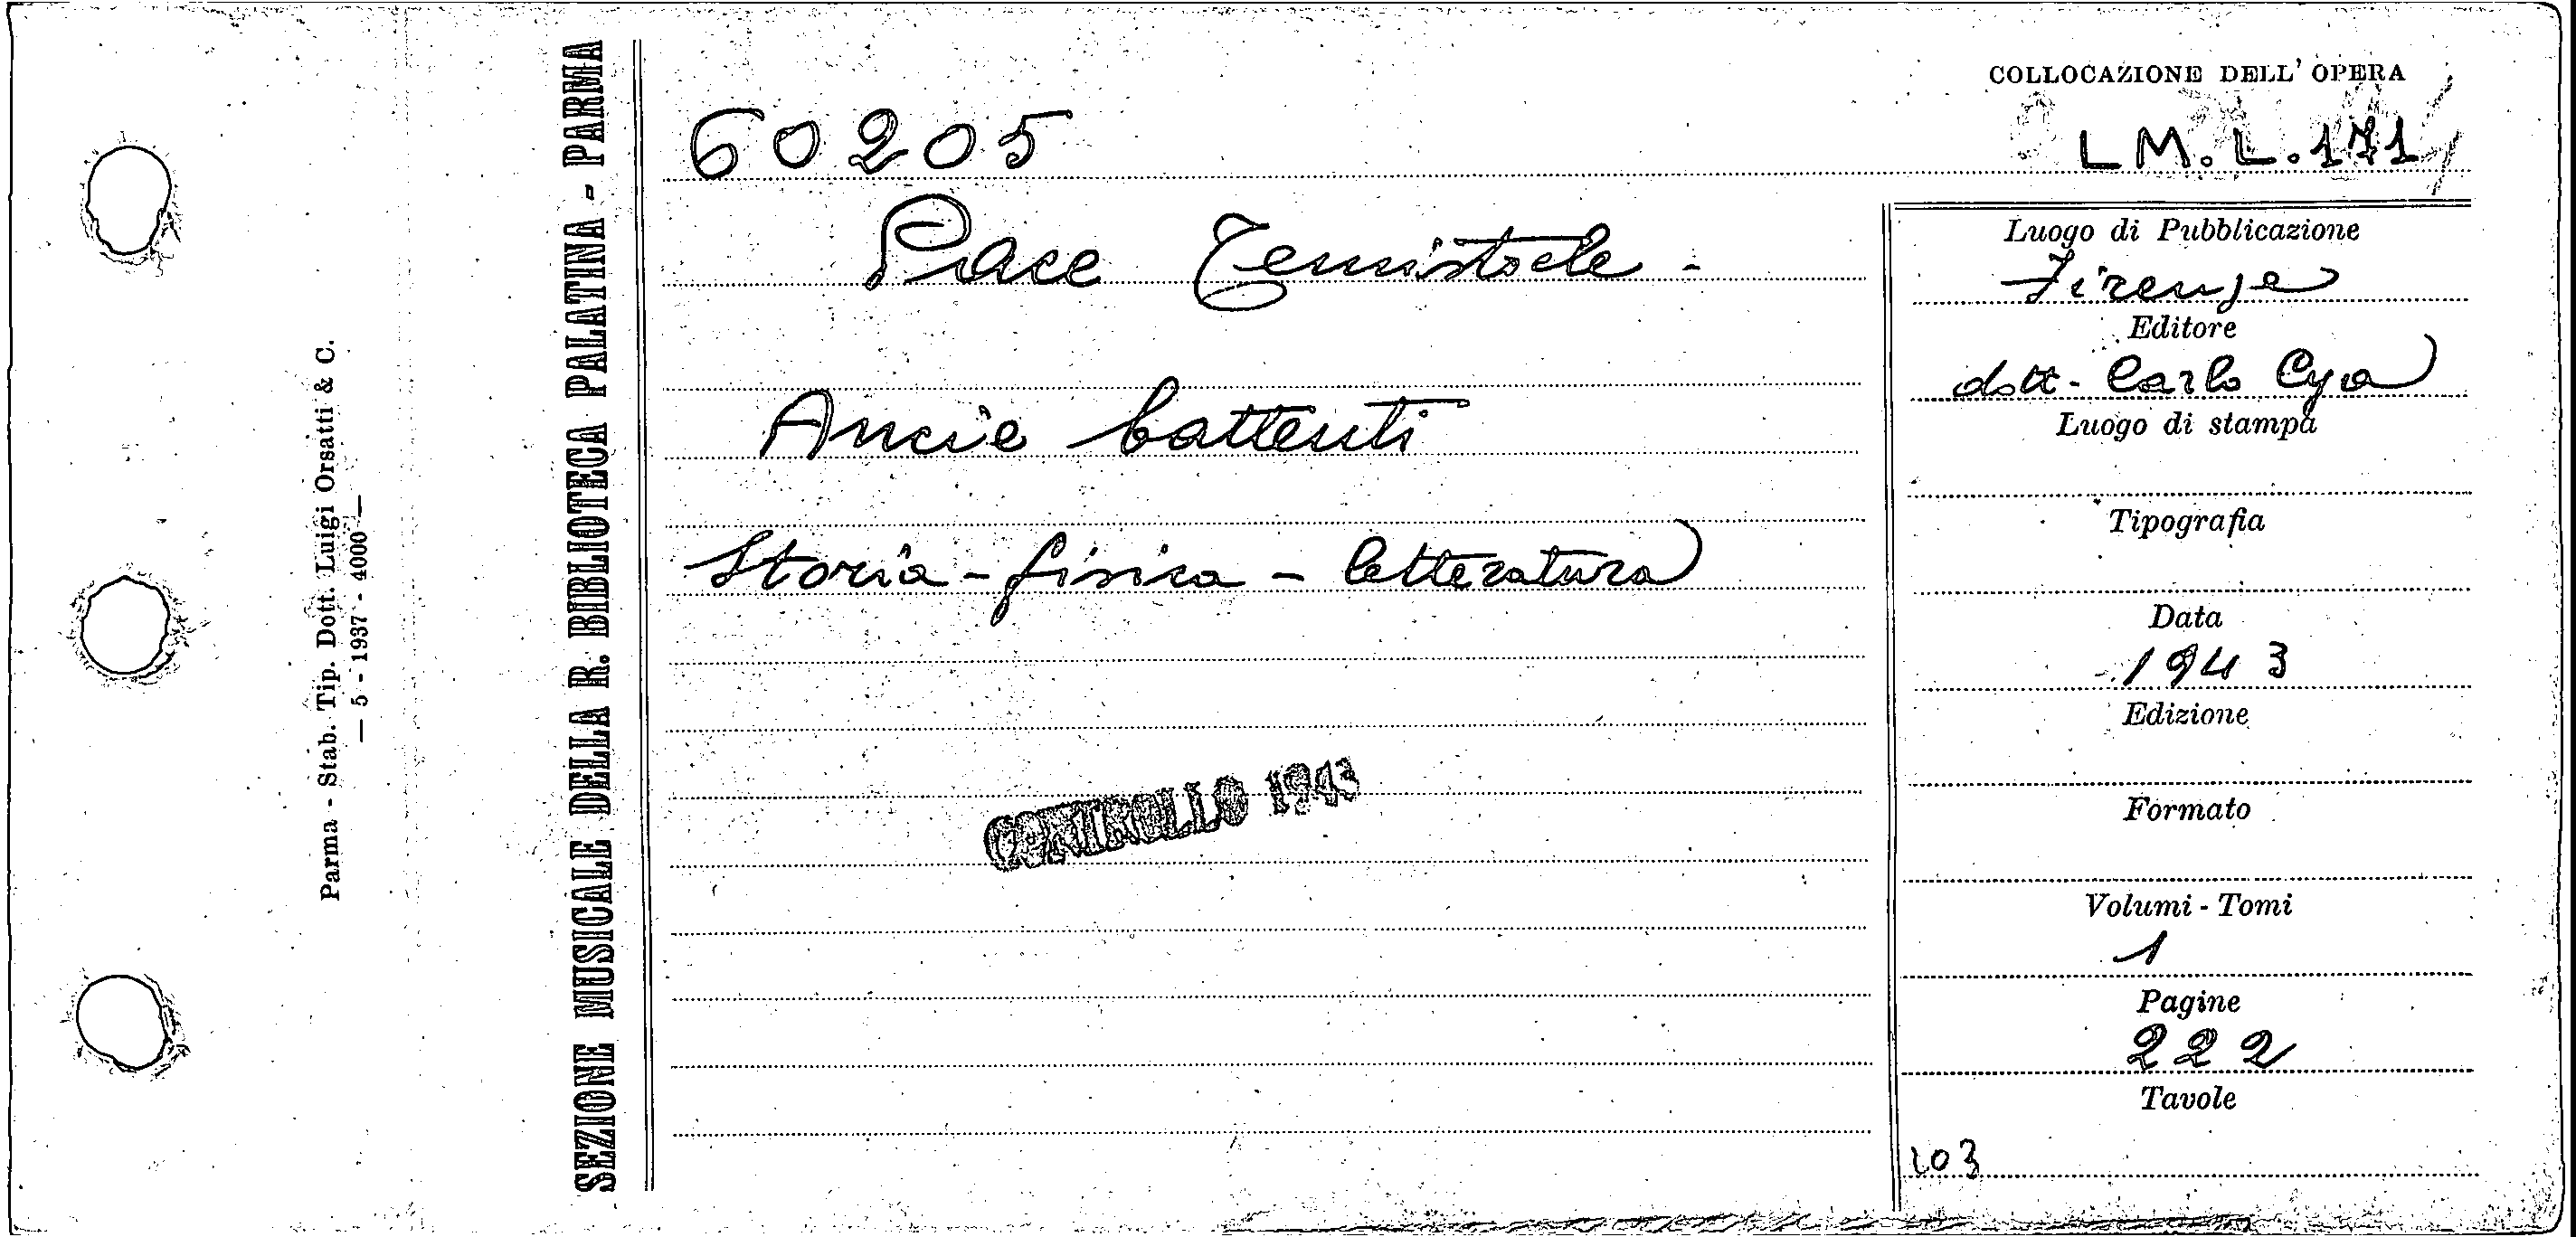 Parma - Stab. Tip. Dott. Luigi Orsatti & C.
— 5 - 1937 - 4000 —
SEZIONE MUSICALE DELLA R. BIBLIOTECA PALATINA - PARMA
COLLOCAZIONE DELL' OPERA
60205
LM.L.171
Pace Temistocle -
Ancie battenti
Storia - fisica - letteratura
CONTROLLO 1943
Luogo di Pubblicazione
Firenze
Editore
dott. Carlo Cya
Luogo di stampa
Tipografia
Data
1943
Edizione
Formato
Volumi - Tomi
1
Pagine
222
Tavole
103